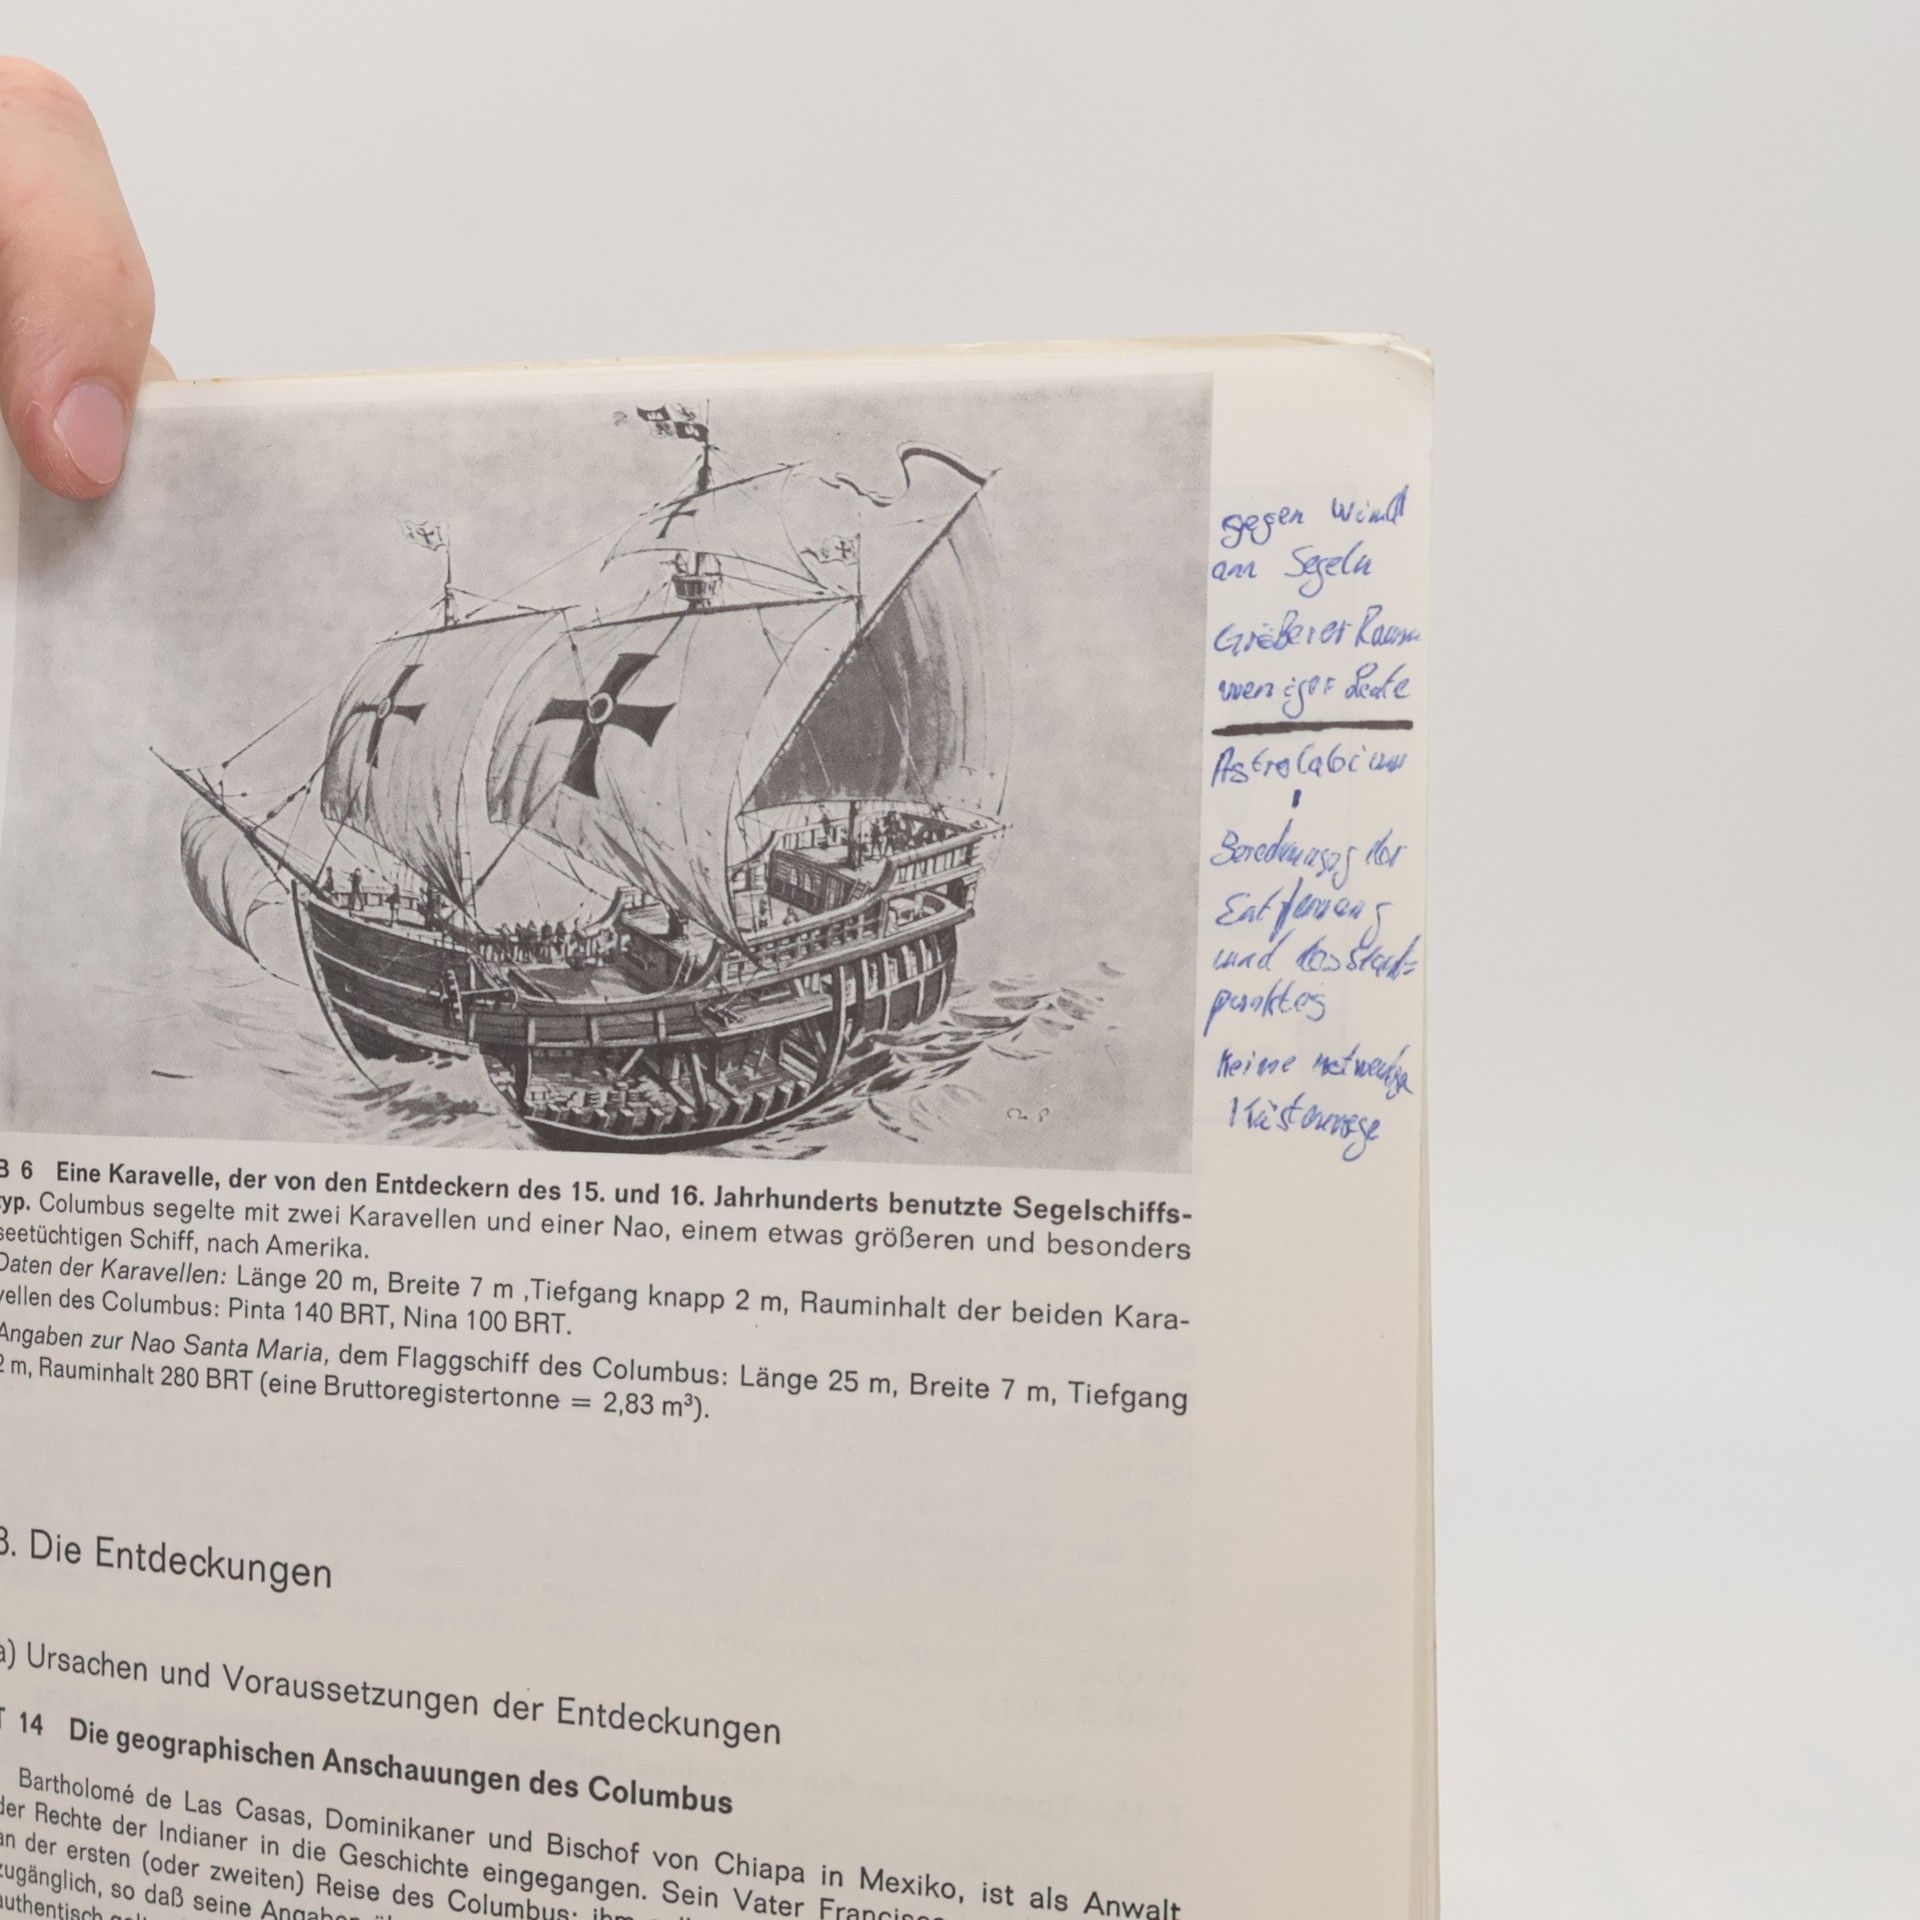 gegen Wind
an Segeln
Größerer Raum
weniger Leute
Astrolabium
Berechnung der
Entfernung
und des Stand=
punktes
Keine notwendige
Küstennähe
B 6 Eine Karavelle, der von den Entdeckern des 15. und 16. Jahrhunderts benutzte Segelschiffs-
typ. Columbus segelte mit zwei Karavellen und einer Nao, einem etwas größeren und besonders
seetüchtigen Schiff, nach Amerika.
Daten der Karavellen: Länge 20 m, Breite 7 m ,Tiefgang knapp 2 m, Rauminhalt der beiden Kara-
vellen des Columbus: Pinta 140 BRT, Nina 100 BRT.
Angaben zur Nao Santa Maria, dem Flaggschiff des Columbus: Länge 25 m, Breite 7 m, Tiefgang
2 m, Rauminhalt 280 BRT (eine Bruttoregistertonne = 2,83 m³).
3. Die Entdeckungen
a) Ursachen und Voraussetzungen der Entdeckungen
T 14 Die geographischen Anschauungen des Columbus
Bartholomé de Las Casas, Dominikaner und Bischof von Chiapa in Mexiko, ist als Anwalt
der Rechte der Indianer in die Geschichte eingegangen. Sein Vater Francisco
an der ersten (oder zweiten) Reise des Columbus;
zugänglich, so daß seine Angaben
authentisch